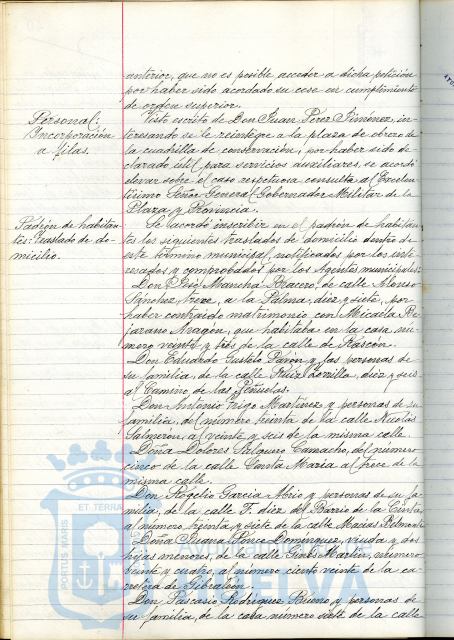 anterior, que no es posible acceder a dicha petición
por haber sido acordado su cese en cumplimiento
de orden superior.
Personal:
Incorporación
a filas.
Visto escrito de Don Juan Pérez Jiménez, in-
teresando se le reintegre a la plaza de obrero de
la cuadrilla de conservación, por haber sido de-
clarado útil para servicios auxiliares, se acordó
elevar sobre el caso respetuosa consulta al Excelen-
tísimo Señor General Gobernador Militar de la
Plaza y Provincia.
Padrón de habitan-
tes: Traslado de do-
micilio.
Se acordó inscribir en el padrón de habitan-
tes los siguientes traslados de domicilio dentro de
este término municipal, notificados por los inte-
resados y comprobados por los Agentes municipales:
Don José Mancha Bracero, de calle Alonso
Sánchez, trece, a la Palma, diez y siete, por
haber contraído matrimonio con Micaela Be-
jarano Aragón, que habitaba en la casa nú-
mero veinte y tres de la calle de Rascón.
Don Eduardo Pavón y las personas de
su familia, de la calle Ruiz Zorrilla, diez y seis
al Camino de las Peñuelas.
Don Antonio Trigo Martínez y personas de su
familia, del número treinta de la calle Nicolás
Salmerón, al veinte y seis de la misma calle.
Doña Dolores Salguero Camacho, del número
cinco de la calle Santa María al trece de la
misma calle.
Don Rogelio García y personas de su fa-
milia, de la calle F. diez del Barrio de la Cinta,
al número treinta y siete de la calle Macías Belmonte
Doña Juana Ponce Domínguez, viuda y dos
hijas menores, de la calle Ginés Martín, número
veinte y cuatro, al número ciento veinte de la ca-
rretera de Gibraleón.
Don Pascasio Rodríguez Bueno y personas de
su familia, de la casa número siete de la calle
PORTUS MARIS
ET TERRA
HUELVA